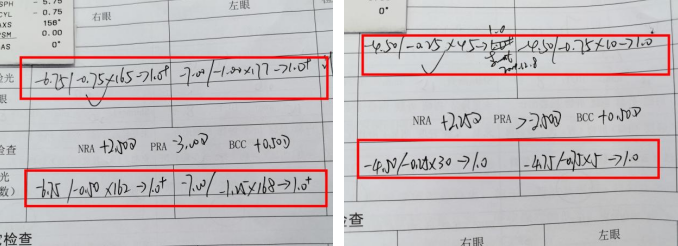 SPH - 5.75
CYL - 0.75
AXS 156°
PSM 0.00
BAS 0°
右眼 左眼
验光 -6.75/-0.75×165→1.0⁺ -7.00/-1.00×177→1.0⁺
眼
检查 NRA +2.50D PRA -3.00D BCC +0.50D
光 -6.75/-0.50×162→1.0⁺ -7.00/-1.25×168→1.0⁺
数)
检查
1.0
-4.50/-0.25×45→ -4.50/-0.75×10→1.0
NRA +2.25D PRA >-2.50D BCC +0.50D
-4.50/-0.25×30→1.0 -4.75/-0.75×5→1.0
检查
右眼 左眼